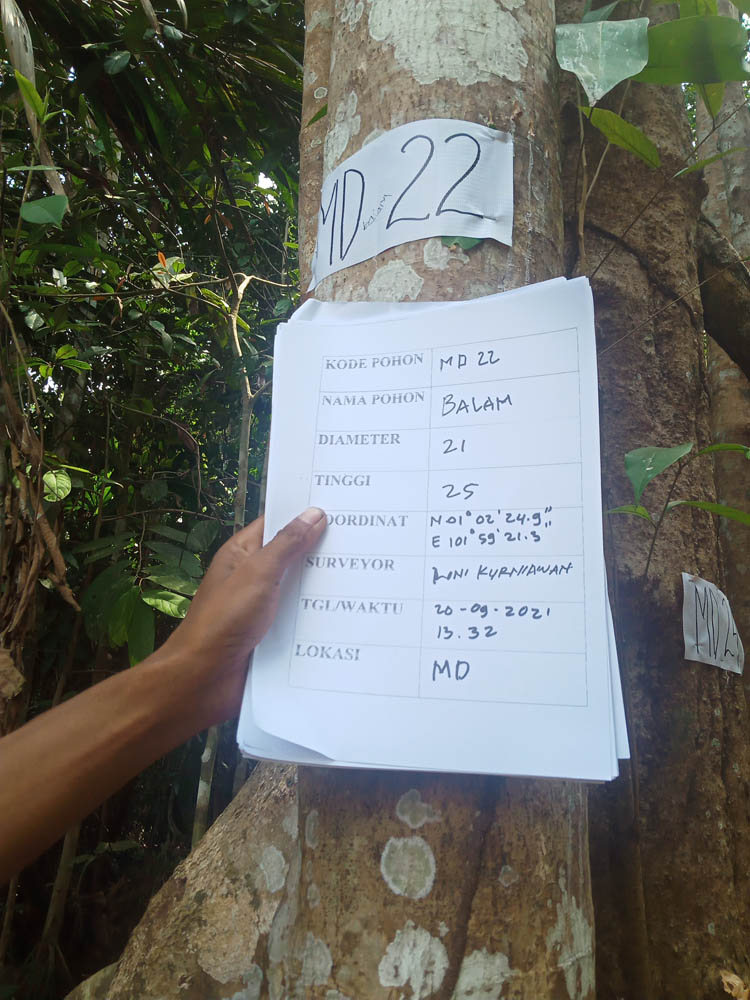 MD balam 22
KODE POHON MD 22
NAMA POHON BALAM
DIAMETER 21
TINGGI 25
OORDINAT N 01° 02' 24.9"
E 101° 59' 21.3"
SURVEYOR KURNIAWAN
TGL/WAKTU 20-09-2021
13.32
LOKASI MD
MD2